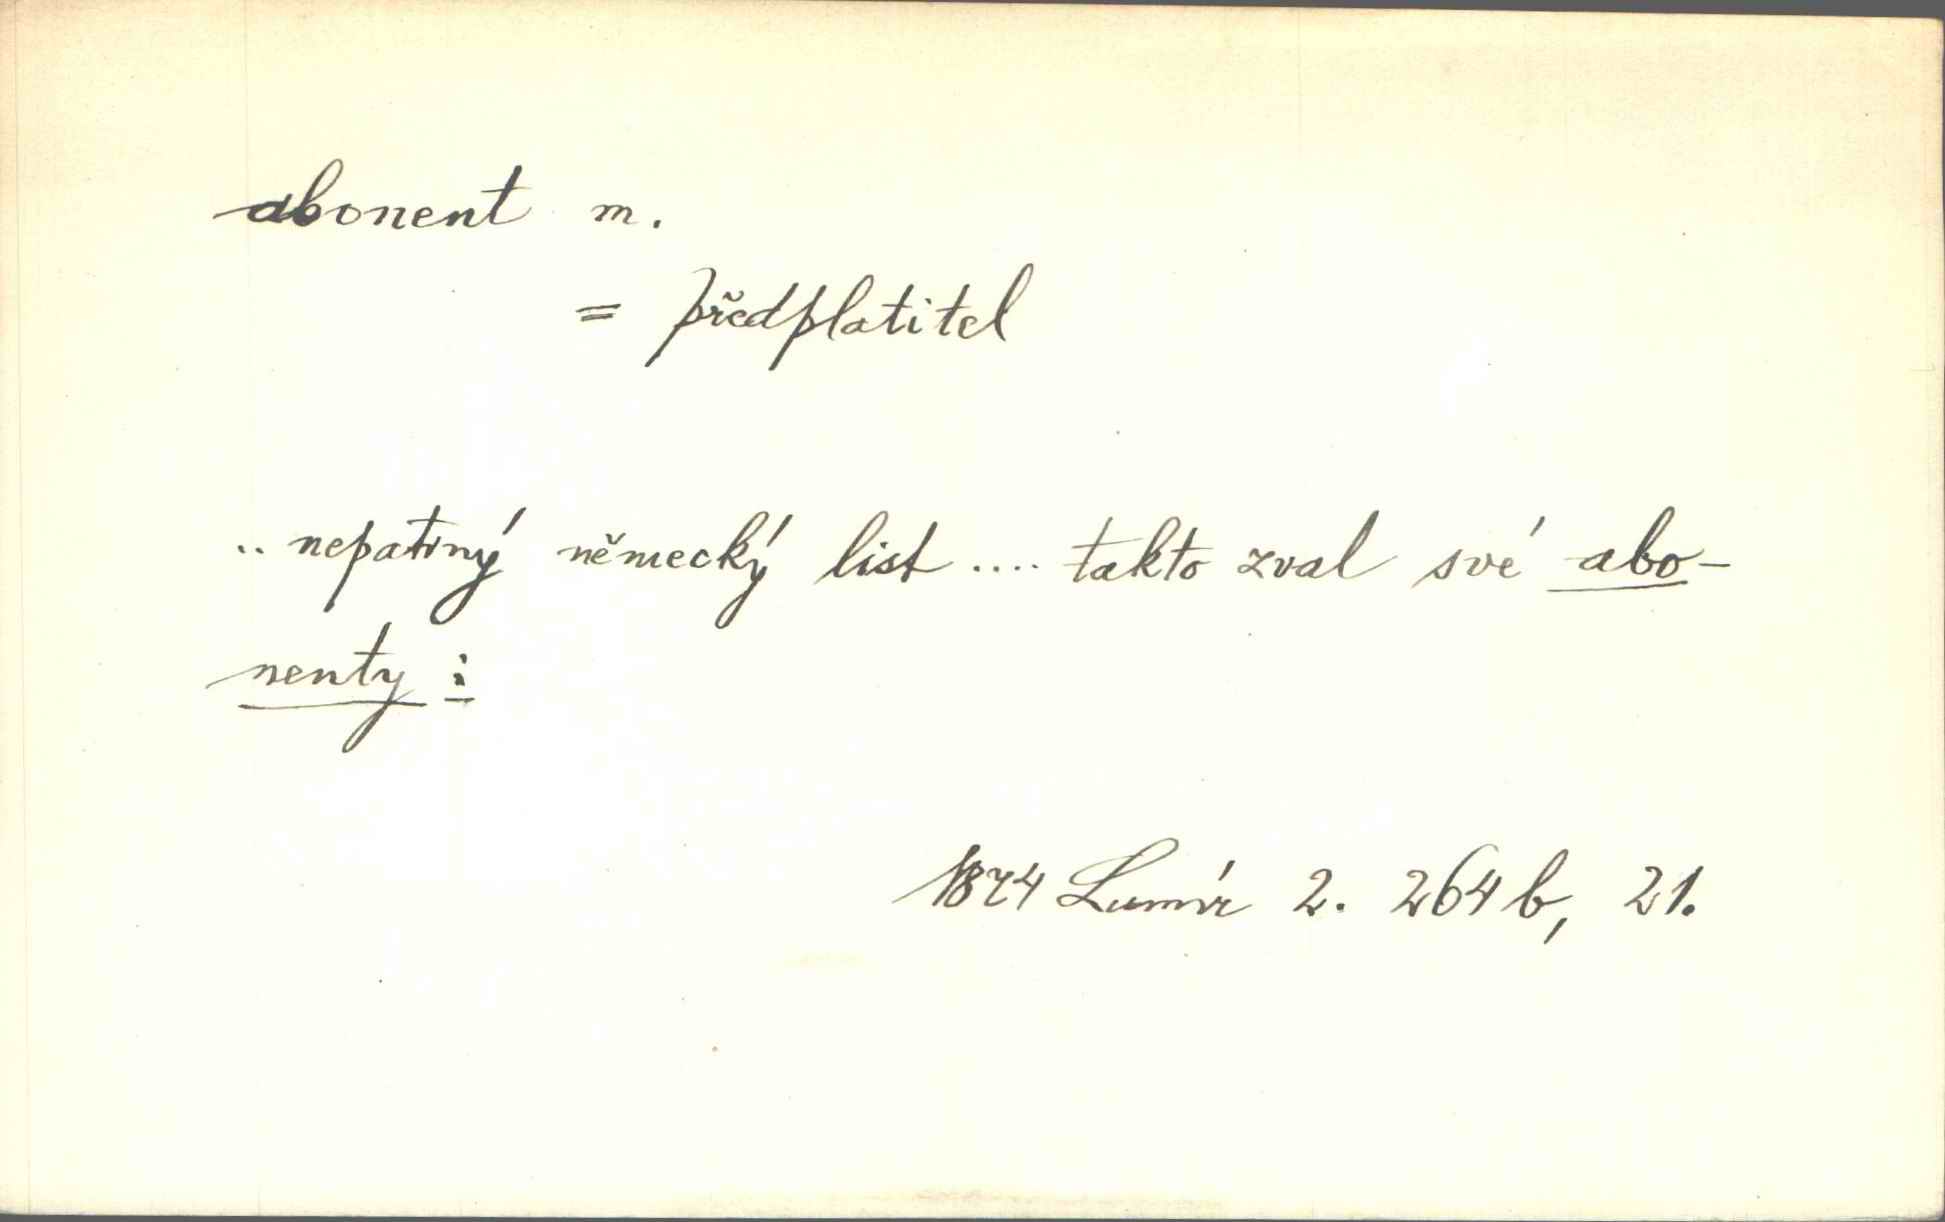 abonent m.
= předplatitel
.. nepatrný německý list .... takto zval své abo-
nenty :
1874 Lumír 2. 264 b, 21.